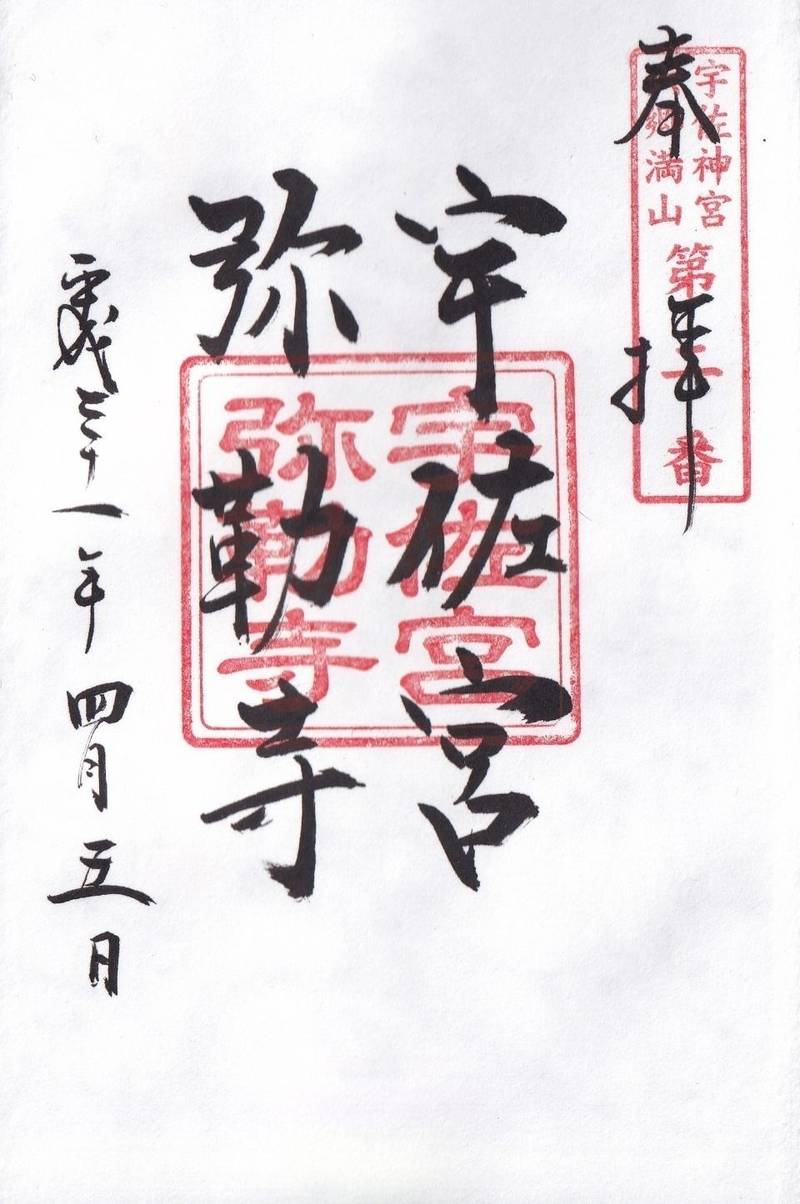 奉拝
宇佐神宮
郷満山
第一番
宇佐宮
弥勒寺
宇佐宮
弥勒寺
平成三十一年四月五日